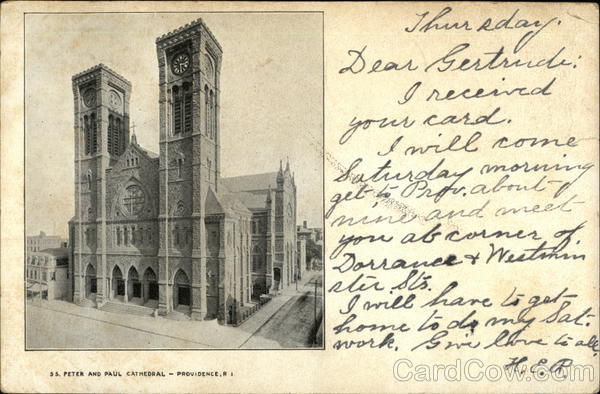 Thursday.
Dear Gertrude:
I received
your card.
I will come
Saturday morning
get to Prov. about
nine and meet
you at corner of
Dorrance & Westmin
ster Sts.
I will have to get
home to do my Sat.
work. Give love to all.
H. E. P.
SS. PETER AND PAUL CATHEDRAL – PROVIDENCE, R I.
CardCow.com